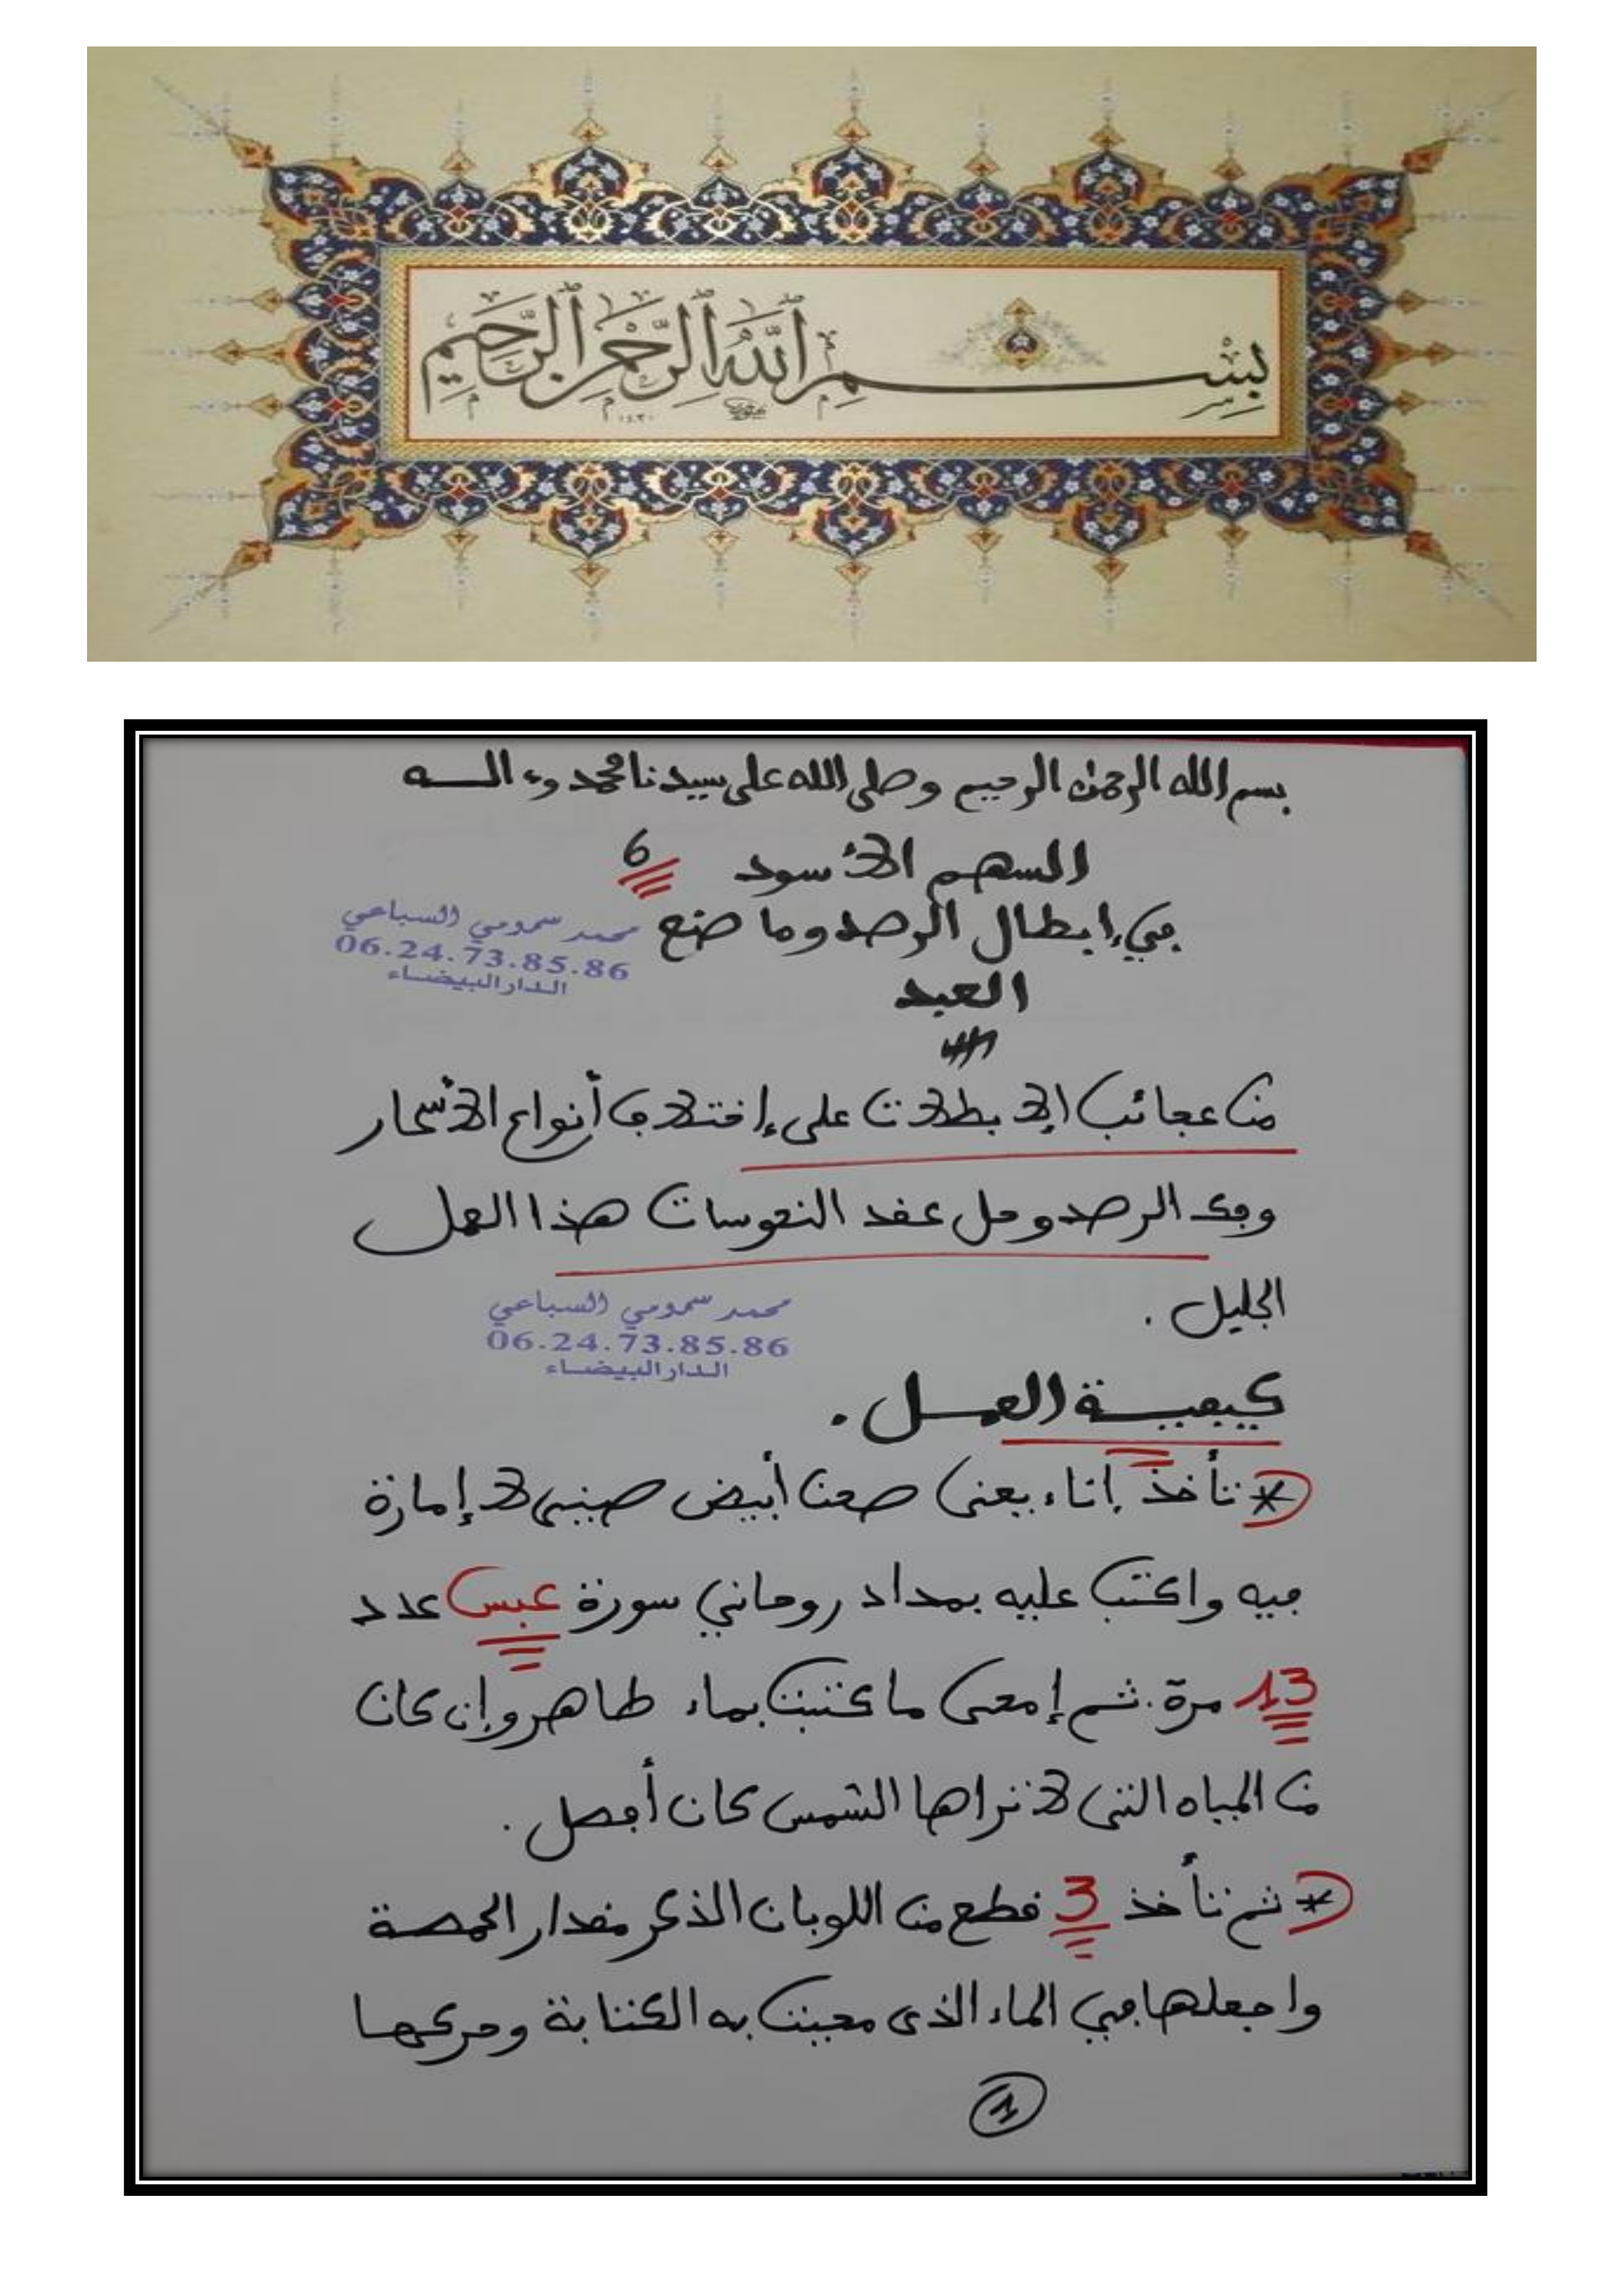 بِسْمِ ٱللَّهِ ٱلرَّحْمَٰنِ ٱلرَّحِيمِ
بسم الله الرحمن الرحيم وصلى الله على سيدنا محمد وءالـــه
السهم الأسود 6
في إبطال الرصد وما صنع
محمد سمومي السباعي
06.24.73.85.86
الدار البيضاء
العبد
من عجائب الإبطلات على إختلاف أنواع الأسحار
وفك الرصد وحل عقد النحوسات هذا العمل
الجليل .
محمد سمومي السباعي
06.24.73.85.86
الدار البيضاء
كيفيــة العمــل .
* تأخذ إناء يعنى صحن أبيض صينى لا إمارة
فيه واكتب عليه بمداد روحاني سورة عبس عدد
13 مرة. ثم إمحى ما كتبت بماء طاهر وإن كان
من المياه التى لا تراها الشمس كان أفضل .
* ثم تأخذ 3 قطع من اللوبان الذكر مقدار الحمصة
واجعلها في الماء الذى محيت به الكتابة وحركها
1